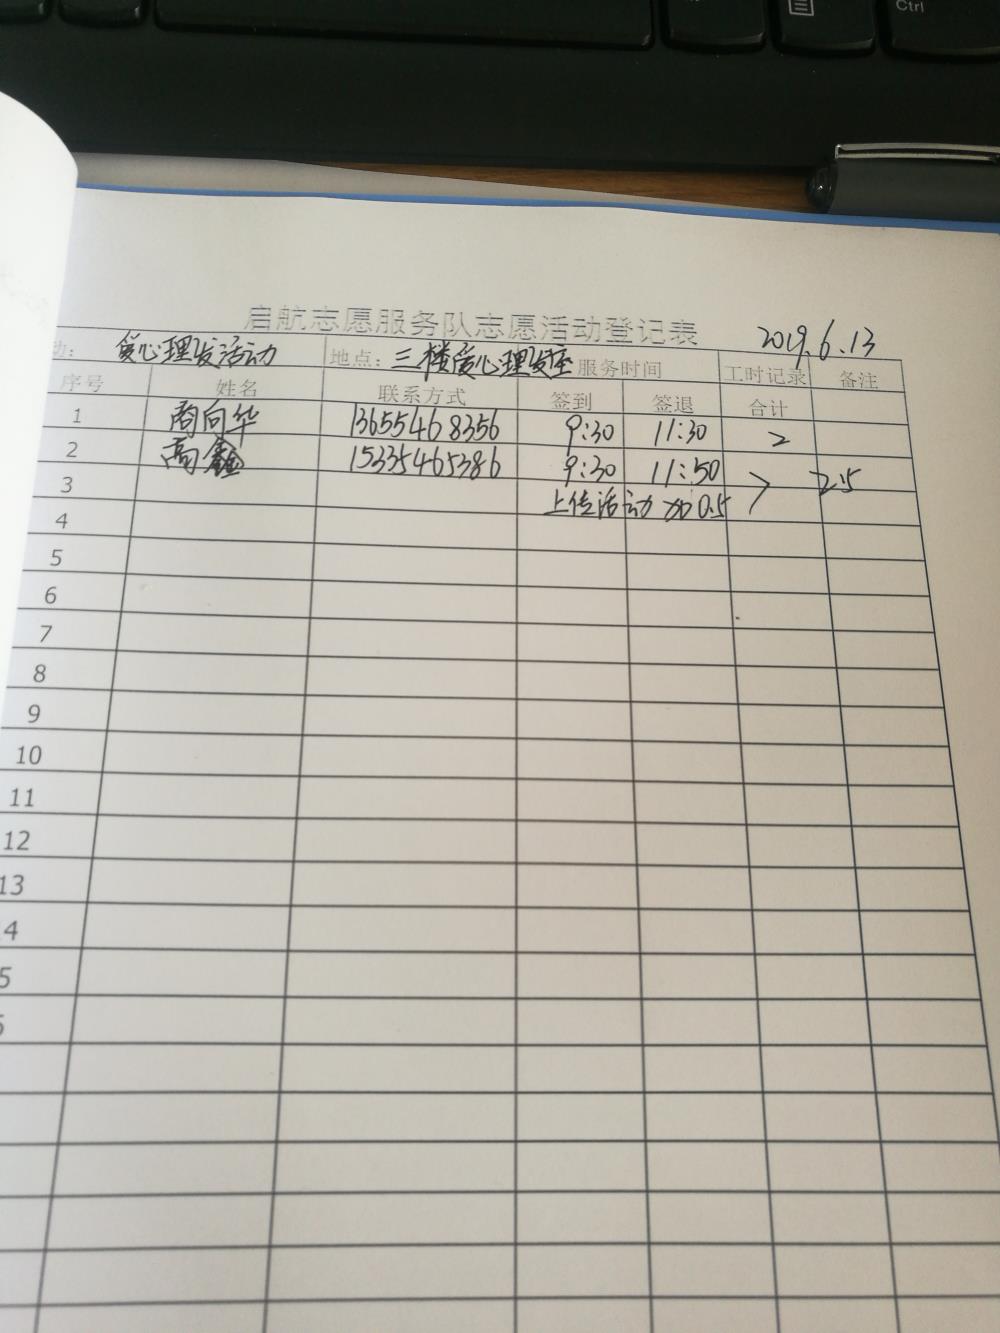 Ctrl
启航志愿服务队志愿活动登记表 2019.6.13
动: 爱心理发活动 地点: 三楼爱心理发室 服务时间 工时记录 备注
序号 姓名 联系方式 签到 签退 合计
1 商向华 13655468356 9:30 11:30 2
2 高鑫 15335465386 9:30 11:50 2.5
3 上传活动 加0.5
4
5
6
7
8
9
10
11
12
13
14
5